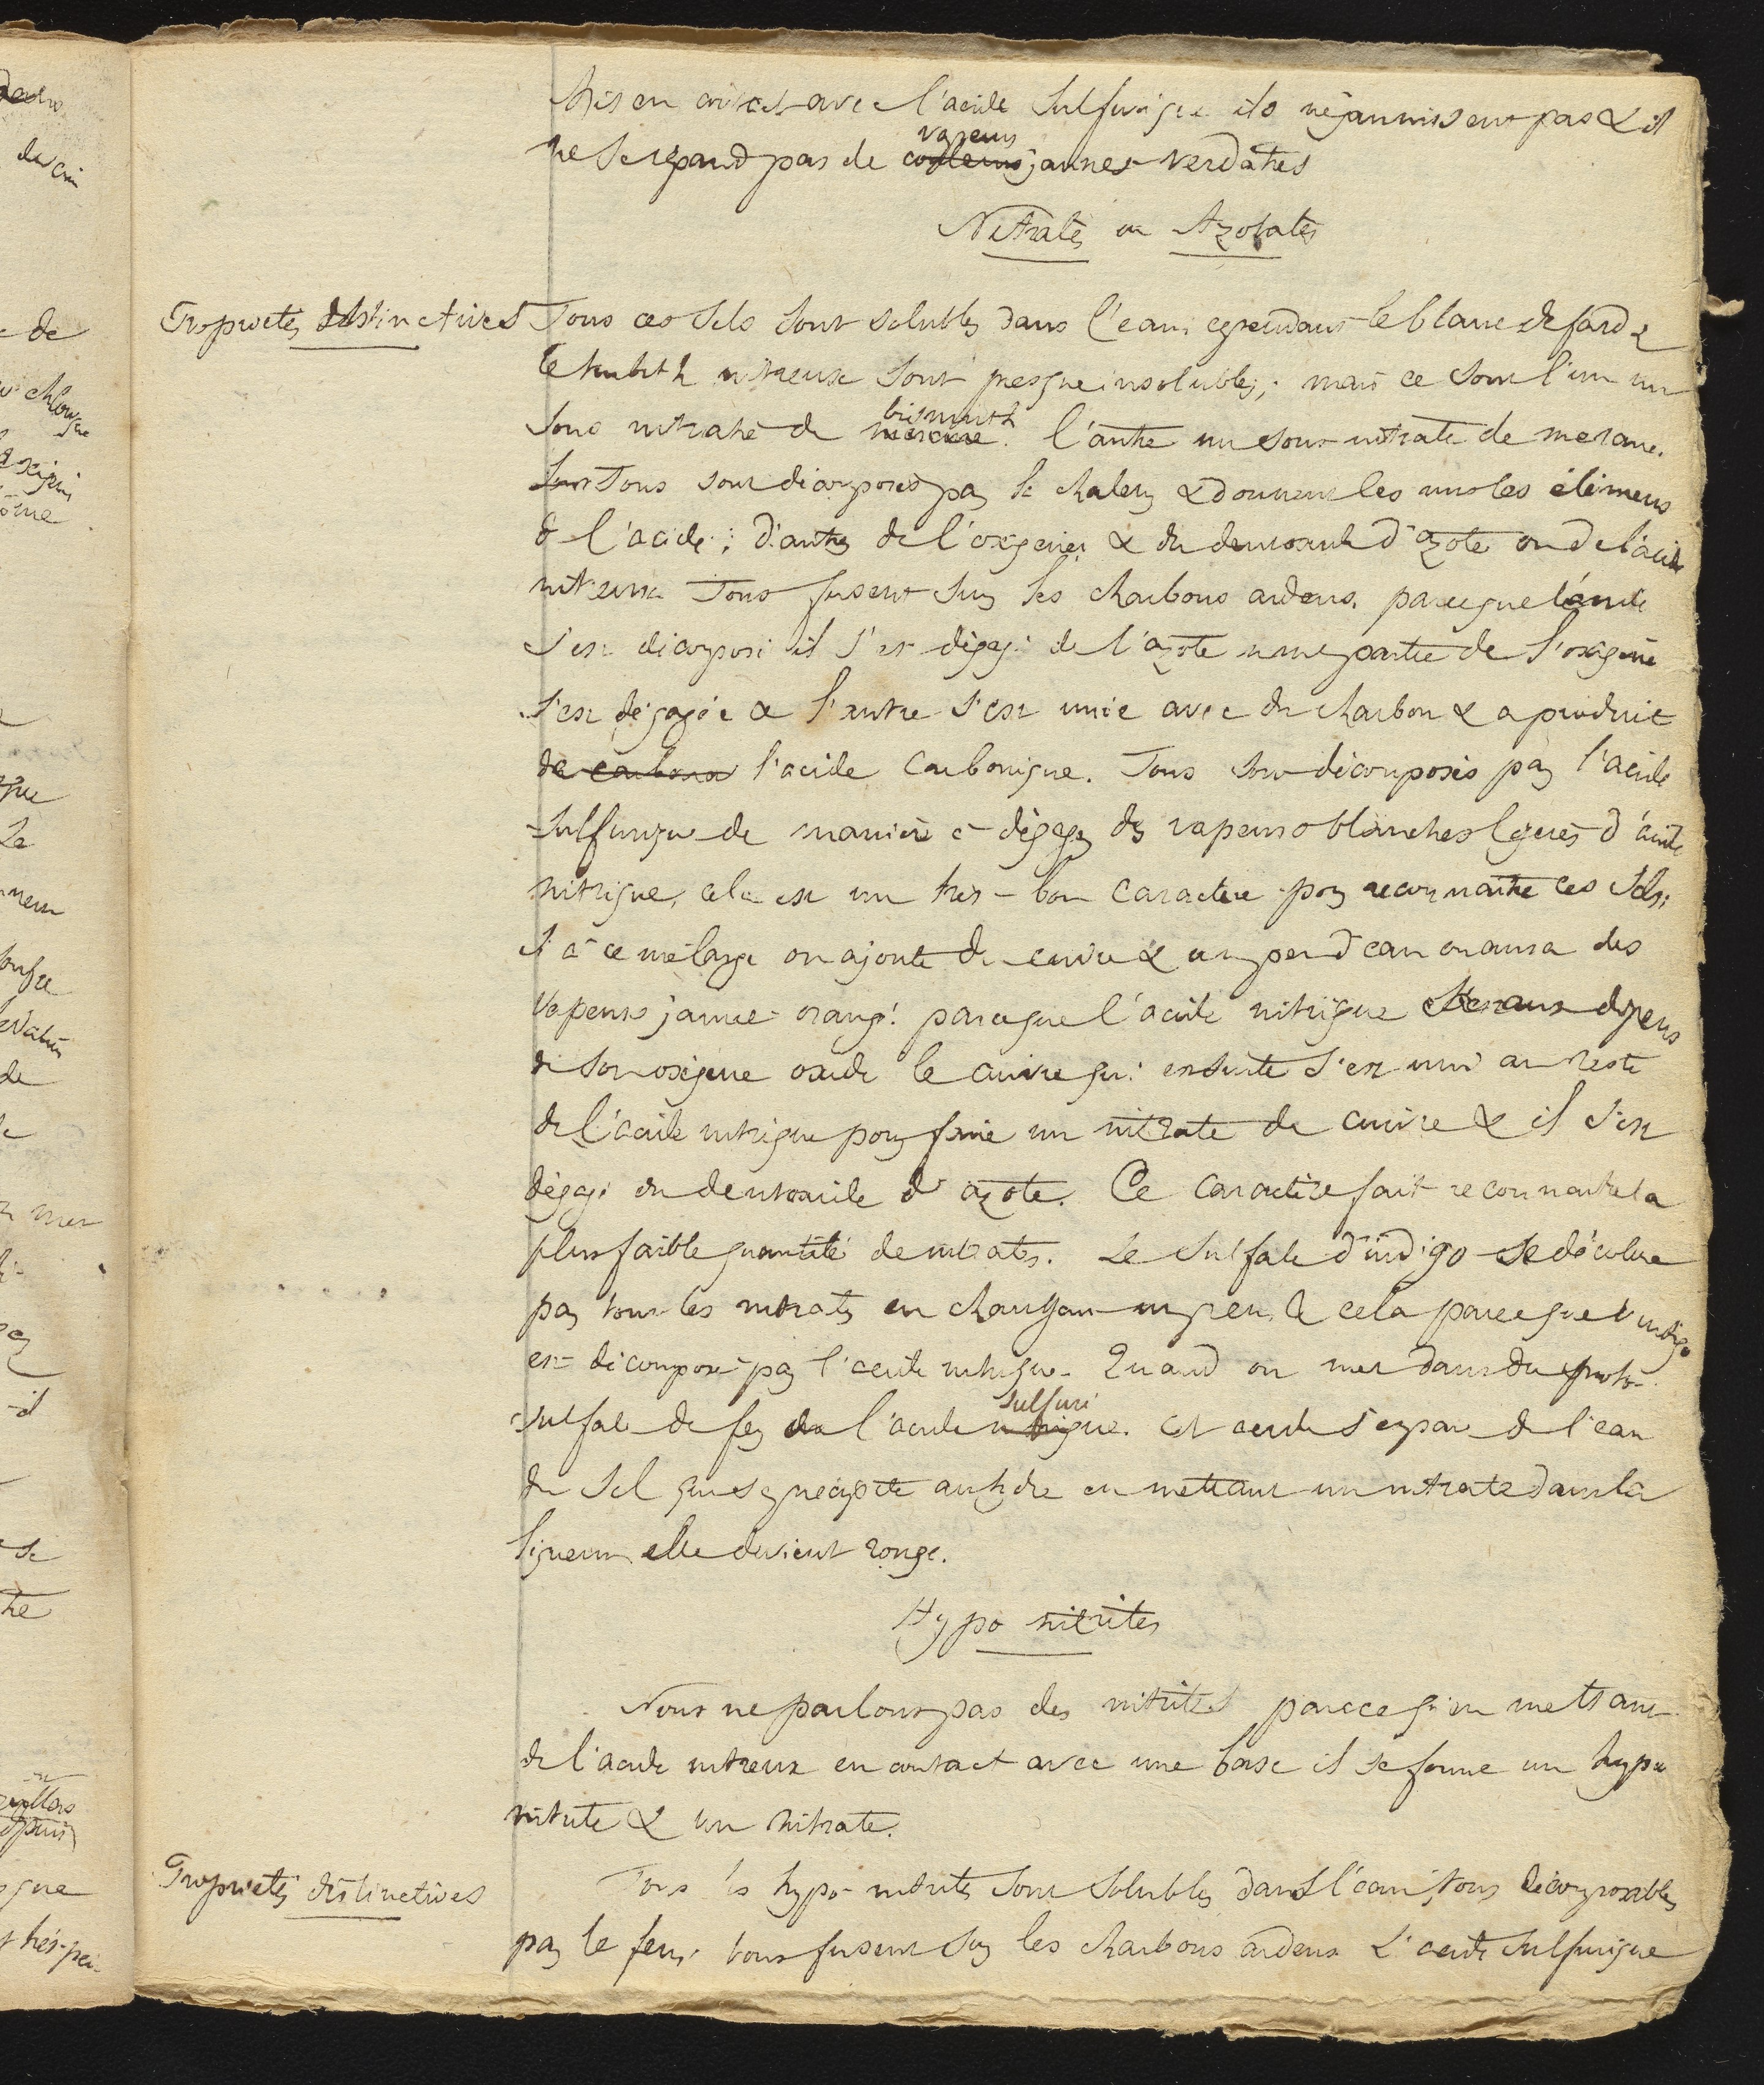 Mis en contact avec l'acide sulfurique ils ne jaunissent pas & il
ne se répand pas de couleurs vapeurs jaunes verdâtres
Nitrates ou Azotates
Propriétés distinctives Tous ces sels sont solubles dans l'eau, cependant le blanc de fard &
le turbith nitreux sont presque insolubles; mais ce sont l'un un
sous nitrate de mercure bismuth. l'autre un sous-nitrate de mercure.
Tous sont décomposés par la chaleur & donnent les uns les élémens
de l'acide; d'autres de l'oxigène & du deutoxide d'azote ou de l'acide
nitreux Tous fusent sur les charbons ardens. parceque l'acide
s'est décomposé il s'est dégagé de l'azote une partie de l'oxigène
s'est dégagée & l'autre s'est unie avec du charbon & a produit
de carbone l'acide carbonique. Tous sont décomposés par l'acide
sulfurique de manière à dégager des vapeurs blanches légères d'acide
nitrique, cela est un très-bon caractère pour reconnaitre ces sels;
si à ce mélange on ajoute du cuivre & un peu d'eau on aura des
vapeurs jaune-orangé. parceque l'acide nitrique aux dépens
de son oxigène oxide le cuivre qui ensuite s'est uni au reste
de l'acide nitrique pour faire un nitrate de cuivre & il s'est
dégagé du deutoxide d'azote. Ce caractère fait reconnaitre la
plus faible quantité de nitrates. Le sulfate d'indigo se décolore
par tous les nitrates en chauffant un peu, & cela parceque l'indigo
est décomposé par l'acide nitrique. Quand on met dans du proto-
sulfate de fer de l'acide nitrique sulfuri. Cet acide s'empare de l'eau
du sel qui se précipite anhydre en mettant un nitrate dans la
liqueur, elle devient rouge.
Hypo nitrites
Nous ne parlons pas des nitrites parcequ'en mettant
de l'acide nitreux en contact avec une base il se forme un hypo
nitrite & un nitrate.
Propriétés distinctives Tous les hypo-nitrites sont solubles dans l'eau, tous décomposables
par le feu; tous fusent sur les charbons ardens L'acide sulfurique